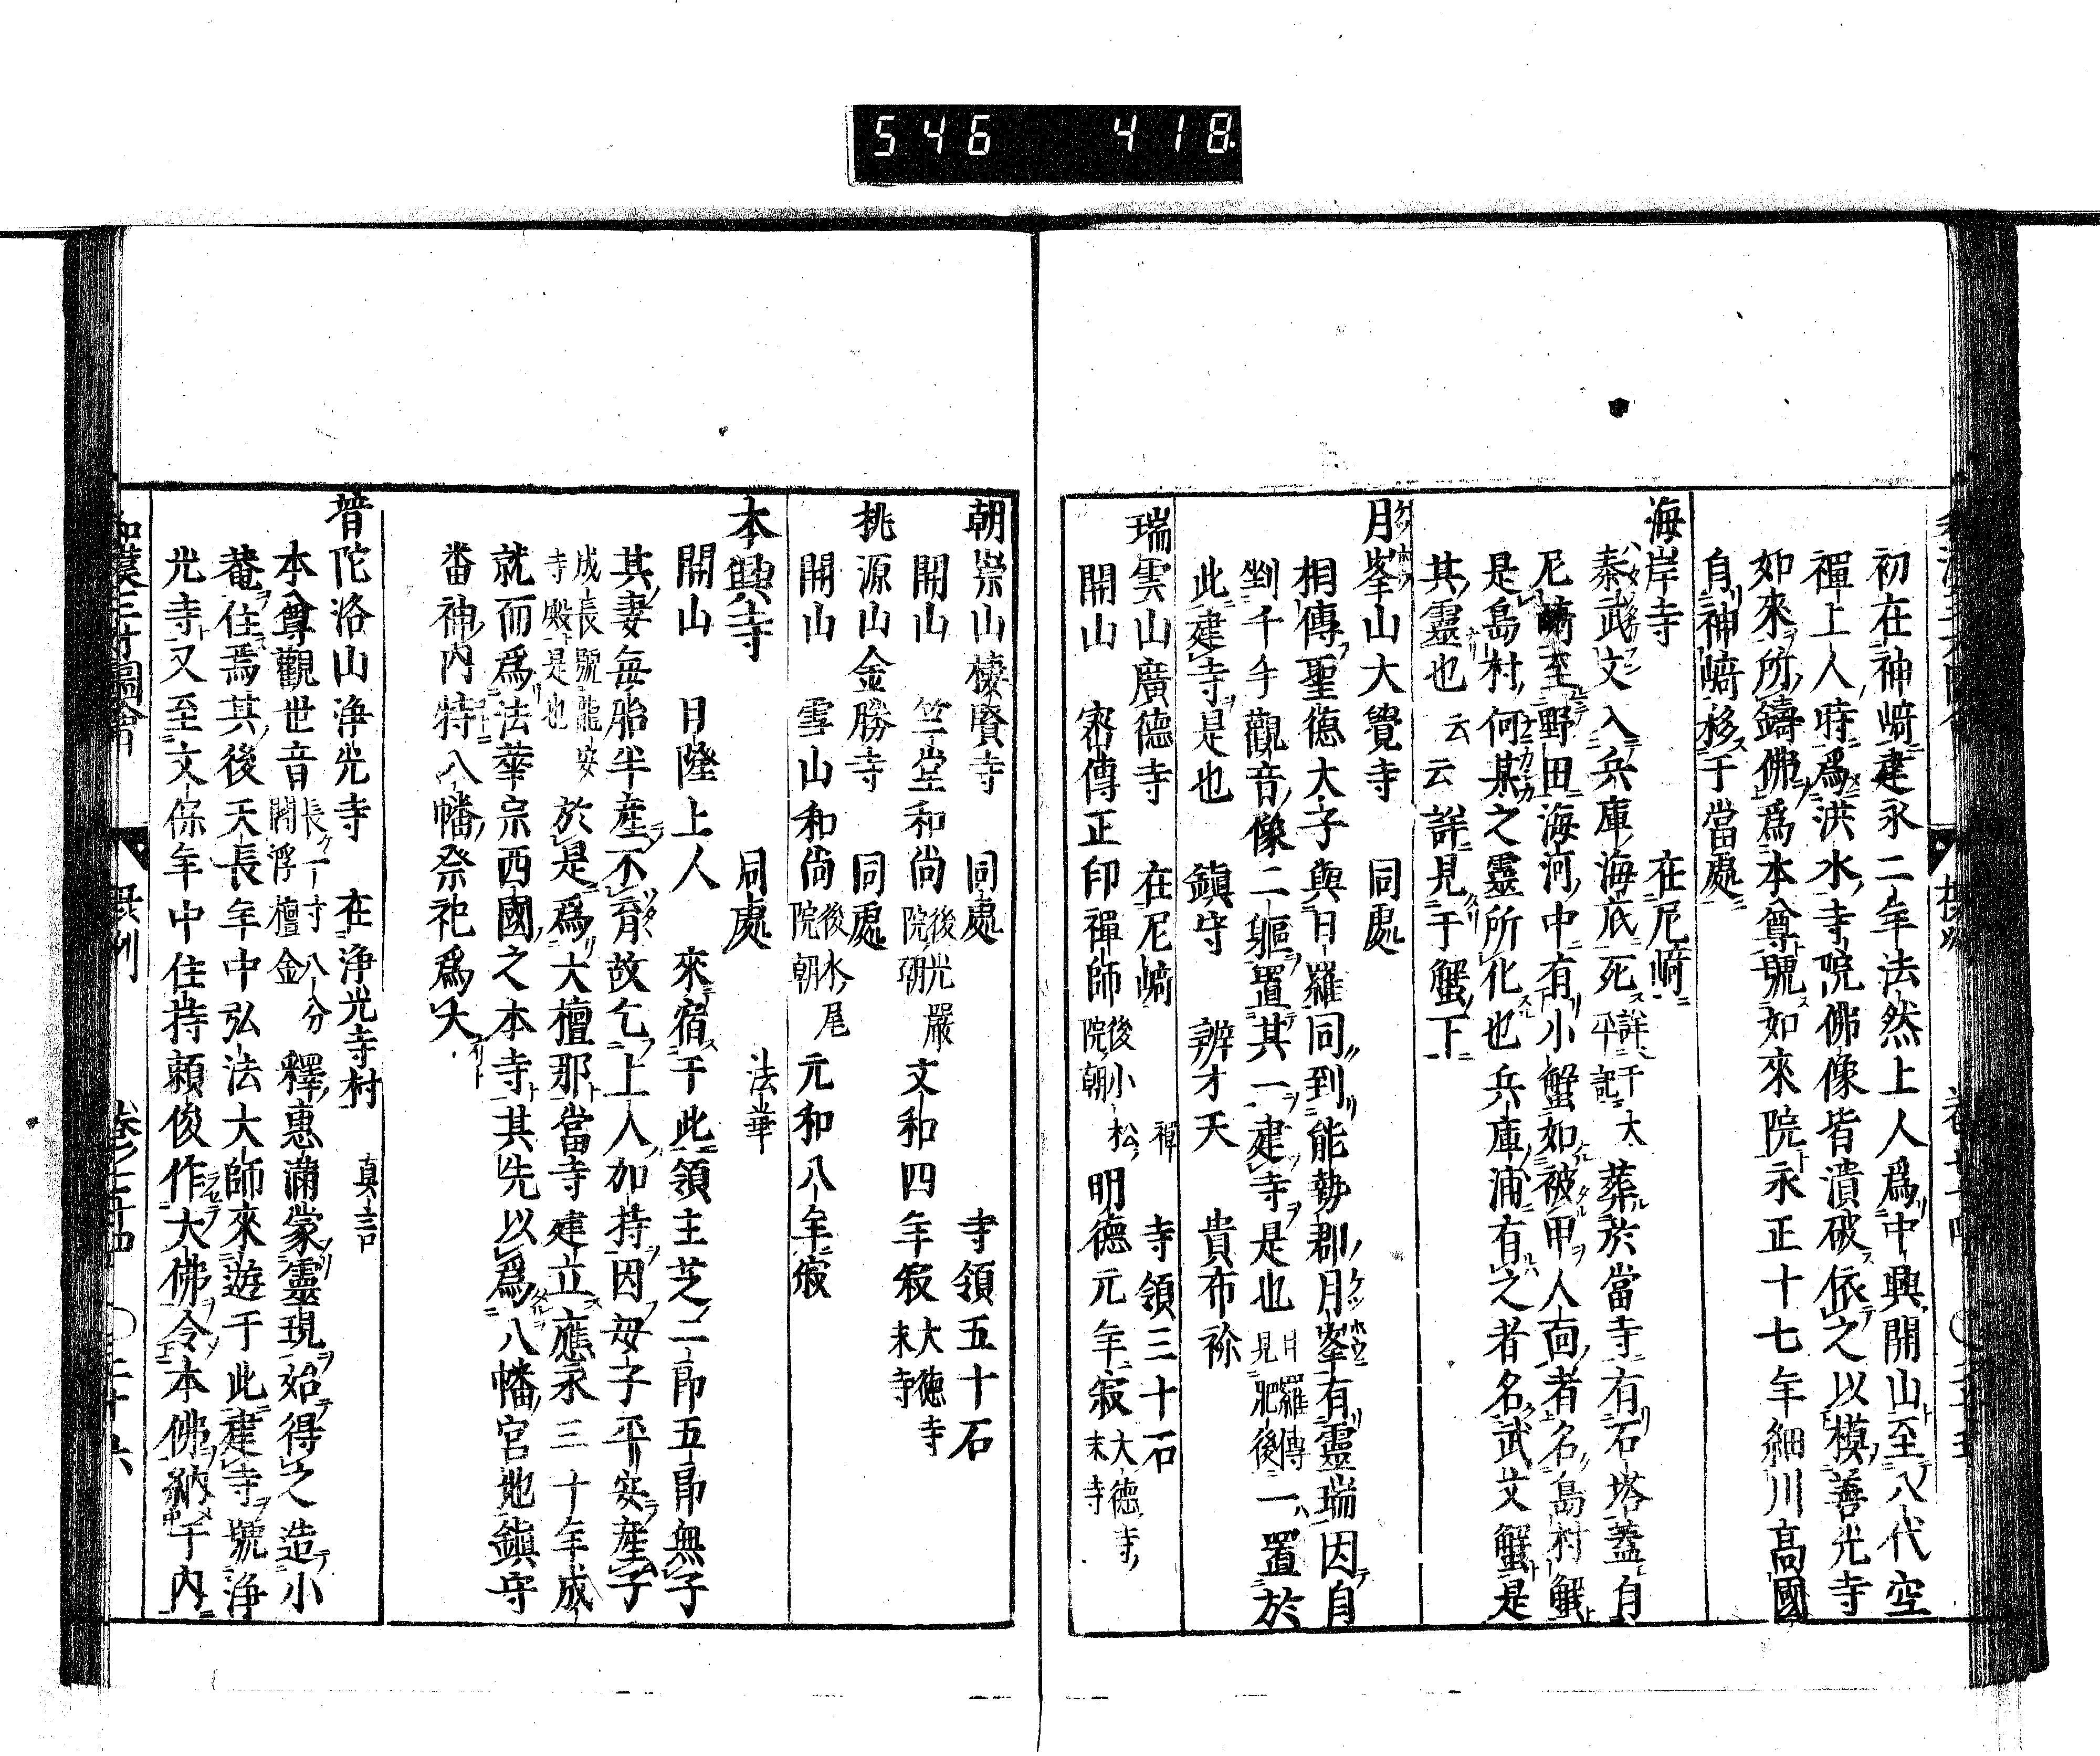 546 418
初在神崎建永二年法然上人爲中興開山至八代空
禪上人時爲洪水寺院佛像皆潰破依之以模善光寺
如來所鑄佛爲本尊號如來院永正十七年細川高國
自神崎移于當處
海岸寺 在尼崎
秦武文入兵庫海底死詳于大平記葬於當寺有石塔蓋自
尼崎至野田海河中有小蟹如被甲人面者名島村蟹
是島村何某之靈所化也兵庫浦有之者名武文蟹是
其靈也云云詳見于蟹下
月峯山大覺寺 同處
相傳聖德太子與日羅同到能勢郡月峯有靈瑞因自
剉千手觀音像二軀置其一建寺是也日羅傳見肥後一置於
此建寺是也 鎮守 辨才天 貴布祢
瑞雲山廣德寺 在尼崎 禪 寺領三十石
開山 密傳正印禪師後小松院朝 明德元年寂大德寺末寺
朝崇山棲賢寺 同處 寺領五十石
開山 竺堂和尚後光嚴院朝 文和四年寂大德寺末寺
桃源山金勝寺 同處
開山 雪山和尚後水尾院朝 元和八年寂
本興寺 同處 法華
開山 日隆上人 來宿于此領主芝二郎五郎無子
其妻毎胎半產不育故乞上人加持因母子平安產子
成長號龍安寺殿是也 於是爲大檀那當寺建立應永三十年成
就而爲法華宗西國之本寺其先以爲八幡宮地鎮守
番神内特八幡祭祀爲大
普陀洛山淨光寺 在淨光寺村 真言
本尊觀世音長一寸八分閻浮檀金 釋惠滿蒙靈現始得之造小
菴住焉其後天長年中弘法大師來遊于此建寺號淨
光寺又至文保年中住持頼俊作大佛令本佛納于内
和漢三才圖會 攝州 卷之七十四 〇二十六